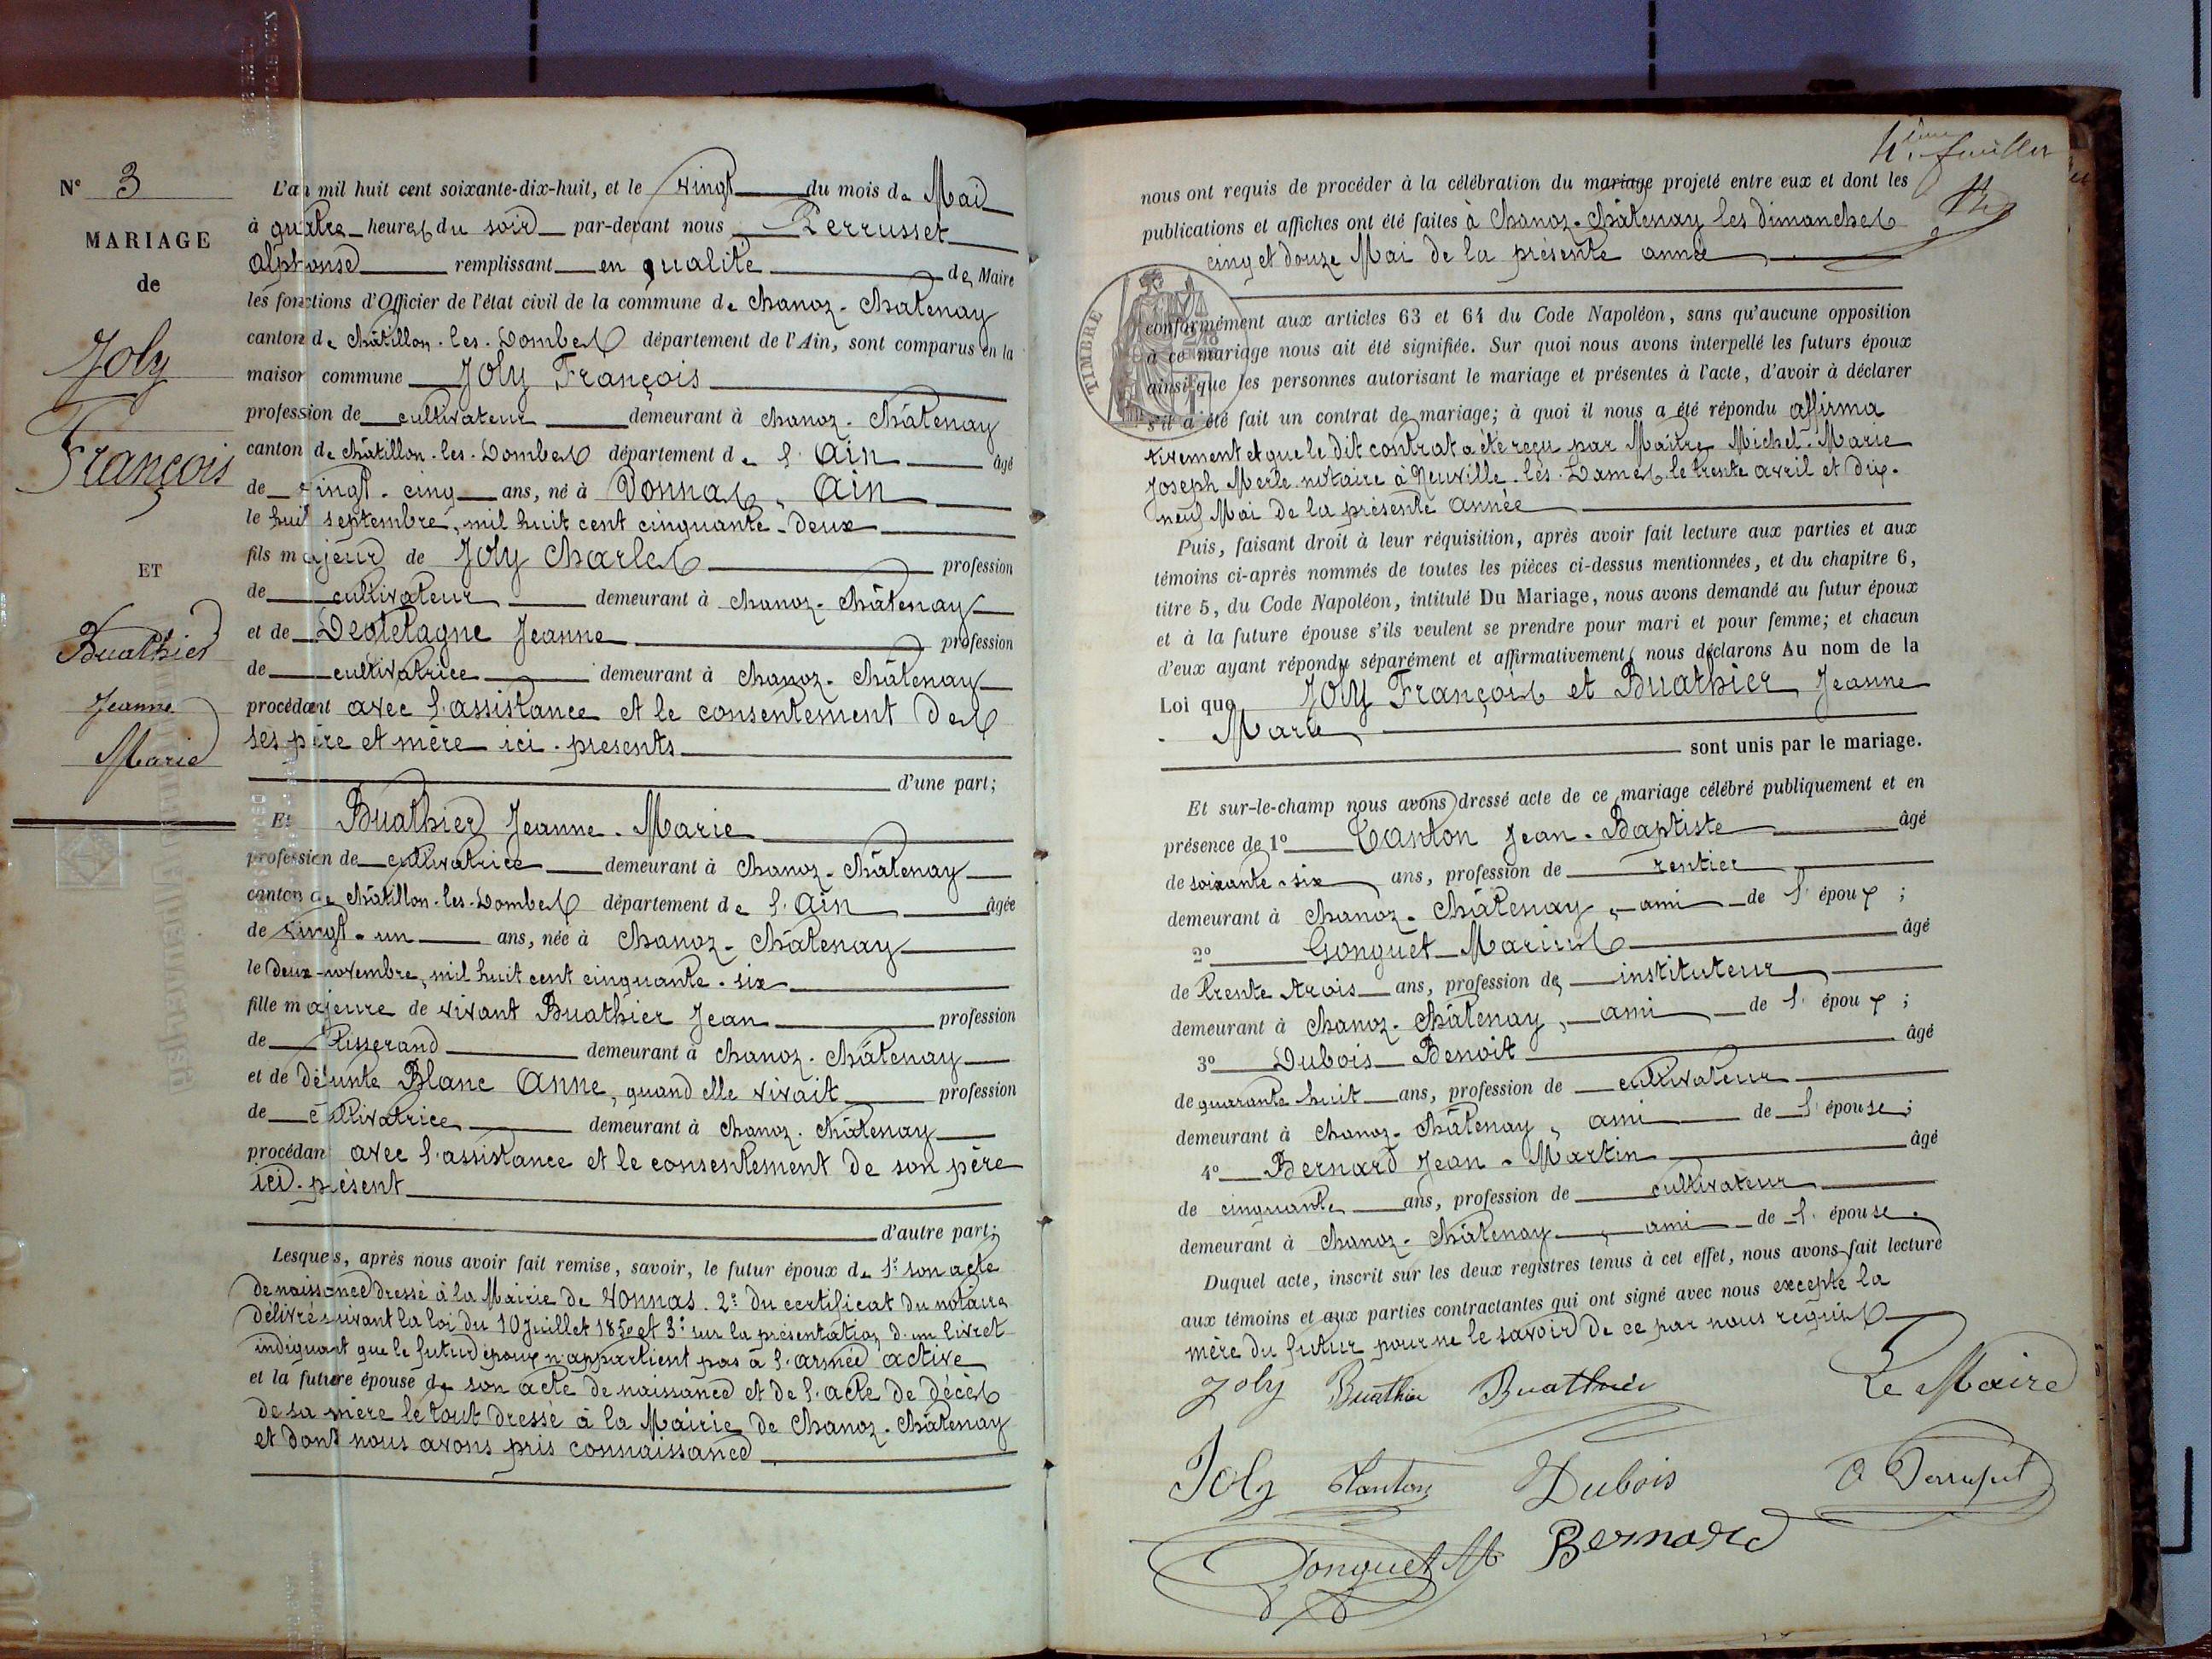 N° 3
MARIAGE
de
Joly
François
ET
Buathier
Jeanne
Marie
L'an mil huit cent soixante-dix-huit, et le vingt du mois de Mai
à quatre heures du soir par-devant nous Perrusset
Alphonse remplissant en qualité de Maire
les fonctions d'Officier de l'état civil de la commune de Chanoz-Chatenay
canton de Châtillon-les-Dombes département de l'Ain, sont comparus en la
maison commune Joly François
profession de cultivateur demeurant à Chanoz-Châtenay
canton de Châtillon-les-Dombes département de l'Ain âgé
de vingt-cinq ans, né à Vonnas, Ain
le huit septembre, mil huit cent cinquante-deux
fils majeur de Joly Charles profession
de cultivateur demeurant à Chanoz-Châtenay
et de Jeanne profession
de cultivatrice demeurant à Chanoz-Châtenay
procédant avec l'assistance et le consentement des
ses père et mère ici-présents
d'une part;
Et Buathier Jeanne-Marie
profession de cultivatrice demeurant à Chanoz-Châtenay
canton de Châtillon-les-Dombes département de l'Ain âgée
de vingt-un ans, née à Chanoz-Châtenay
le deux-novembre, mil huit cent cinquante-six
fille majeure de vivant Buathier Jean profession
de Tisserand demeurant à Chanoz-Châtenay
et de défunte Blanc Anne, quand elle vivait profession
de cultivatrice demeurant à Chanoz-Châtenay
procédant avec l'assistance et le consentement de son père
ici-présent
d'autre part;
Lesquels, après nous avoir fait remise, savoir, le futur époux de 1° son acte
de naissance dressé à la Mairie de Vonnas. 2° du certificat du notaire
délivré suivant la loi du 10 Juillet 1850 et 3° sur la présentation d'un livret
indiquant que le futur époux n'appartient pas à l'armée active
et la future épouse de son acte de naissance et de l'acte de décès
de sa mère le tout dressé à la Mairie de Chanoz-Châtenay
et dont nous avons pris connaissance
4ème feuillet
nous ont requis de procéder à la célébration du mariage projeté entre eux et dont les
publications et affiches ont été faites à Chanoz-Châtenay les dimanches
cinq et douze Mai de la présente année
TIMBRE
conformément aux articles 63 et 64 du Code Napoléon, sans qu'aucune opposition
à ce mariage nous ait été signifiée. Sur quoi nous avons interpellé les futurs époux
ainsi que les personnes autorisant le mariage et présentes à l'acte, d'avoir à déclarer
s'il a été fait un contrat de mariage; à quoi il nous a été répondu affirma
tivement et que le dit contrat a été reçu par Maître Michel-Marie
Joseph Merle notaire à Neuville-les-Dames le trente avril et dix-
neuf Mai de la présente année
Puis, faisant droit à leur réquisition, après avoir fait lecture aux parties et aux
témoins ci-après nommés de toutes les pièces ci-dessus mentionnées, et du chapitre 6,
titre 5, du Code Napoléon, intitulé Du Mariage, nous avons demandé au futur époux
et à la future épouse s'ils veulent se prendre pour mari et pour femme; et chacun
d'eux ayant répondu séparément et affirmativement, nous déclarons Au nom de la
Loi que Joly François et Buathier Jeanne
Marie
sont unis par le mariage.
Et sur-le-champ nous avons dressé acte de ce mariage célébré publiquement et en
présence de 1° Tanton Jean-Baptiste âgé
de soixante-six ans, profession de rentier
demeurant à Chanoz-Châtenay, ami de l'époux;
2° Gonguet Marius âgé
de trente trois ans, profession de instituteur
demeurant à Chanoz-Châtenay, ami de l'époux;
3° Dubois Benoit âgé
de quarante huit ans, profession de cultivateur
demeurant à Chanoz-Châtenay, ami de l'épouse;
4° Bernard Jean-Martin âgé
de cinquante ans, profession de cultivateur
demeurant à Chanoz-Châtenay, ami de l'épouse.
Duquel acte, inscrit sur les deux registres tenus à cet effet, nous avons fait lecture
aux témoins et aux parties contractantes qui ont signé avec nous excepté la
mère du futur pour ne le savoir de ce par nous requis
Joly Buathier Buathier Le Maire
Joly Tanton Dubois A Perrusset
Gonguet M Bernard